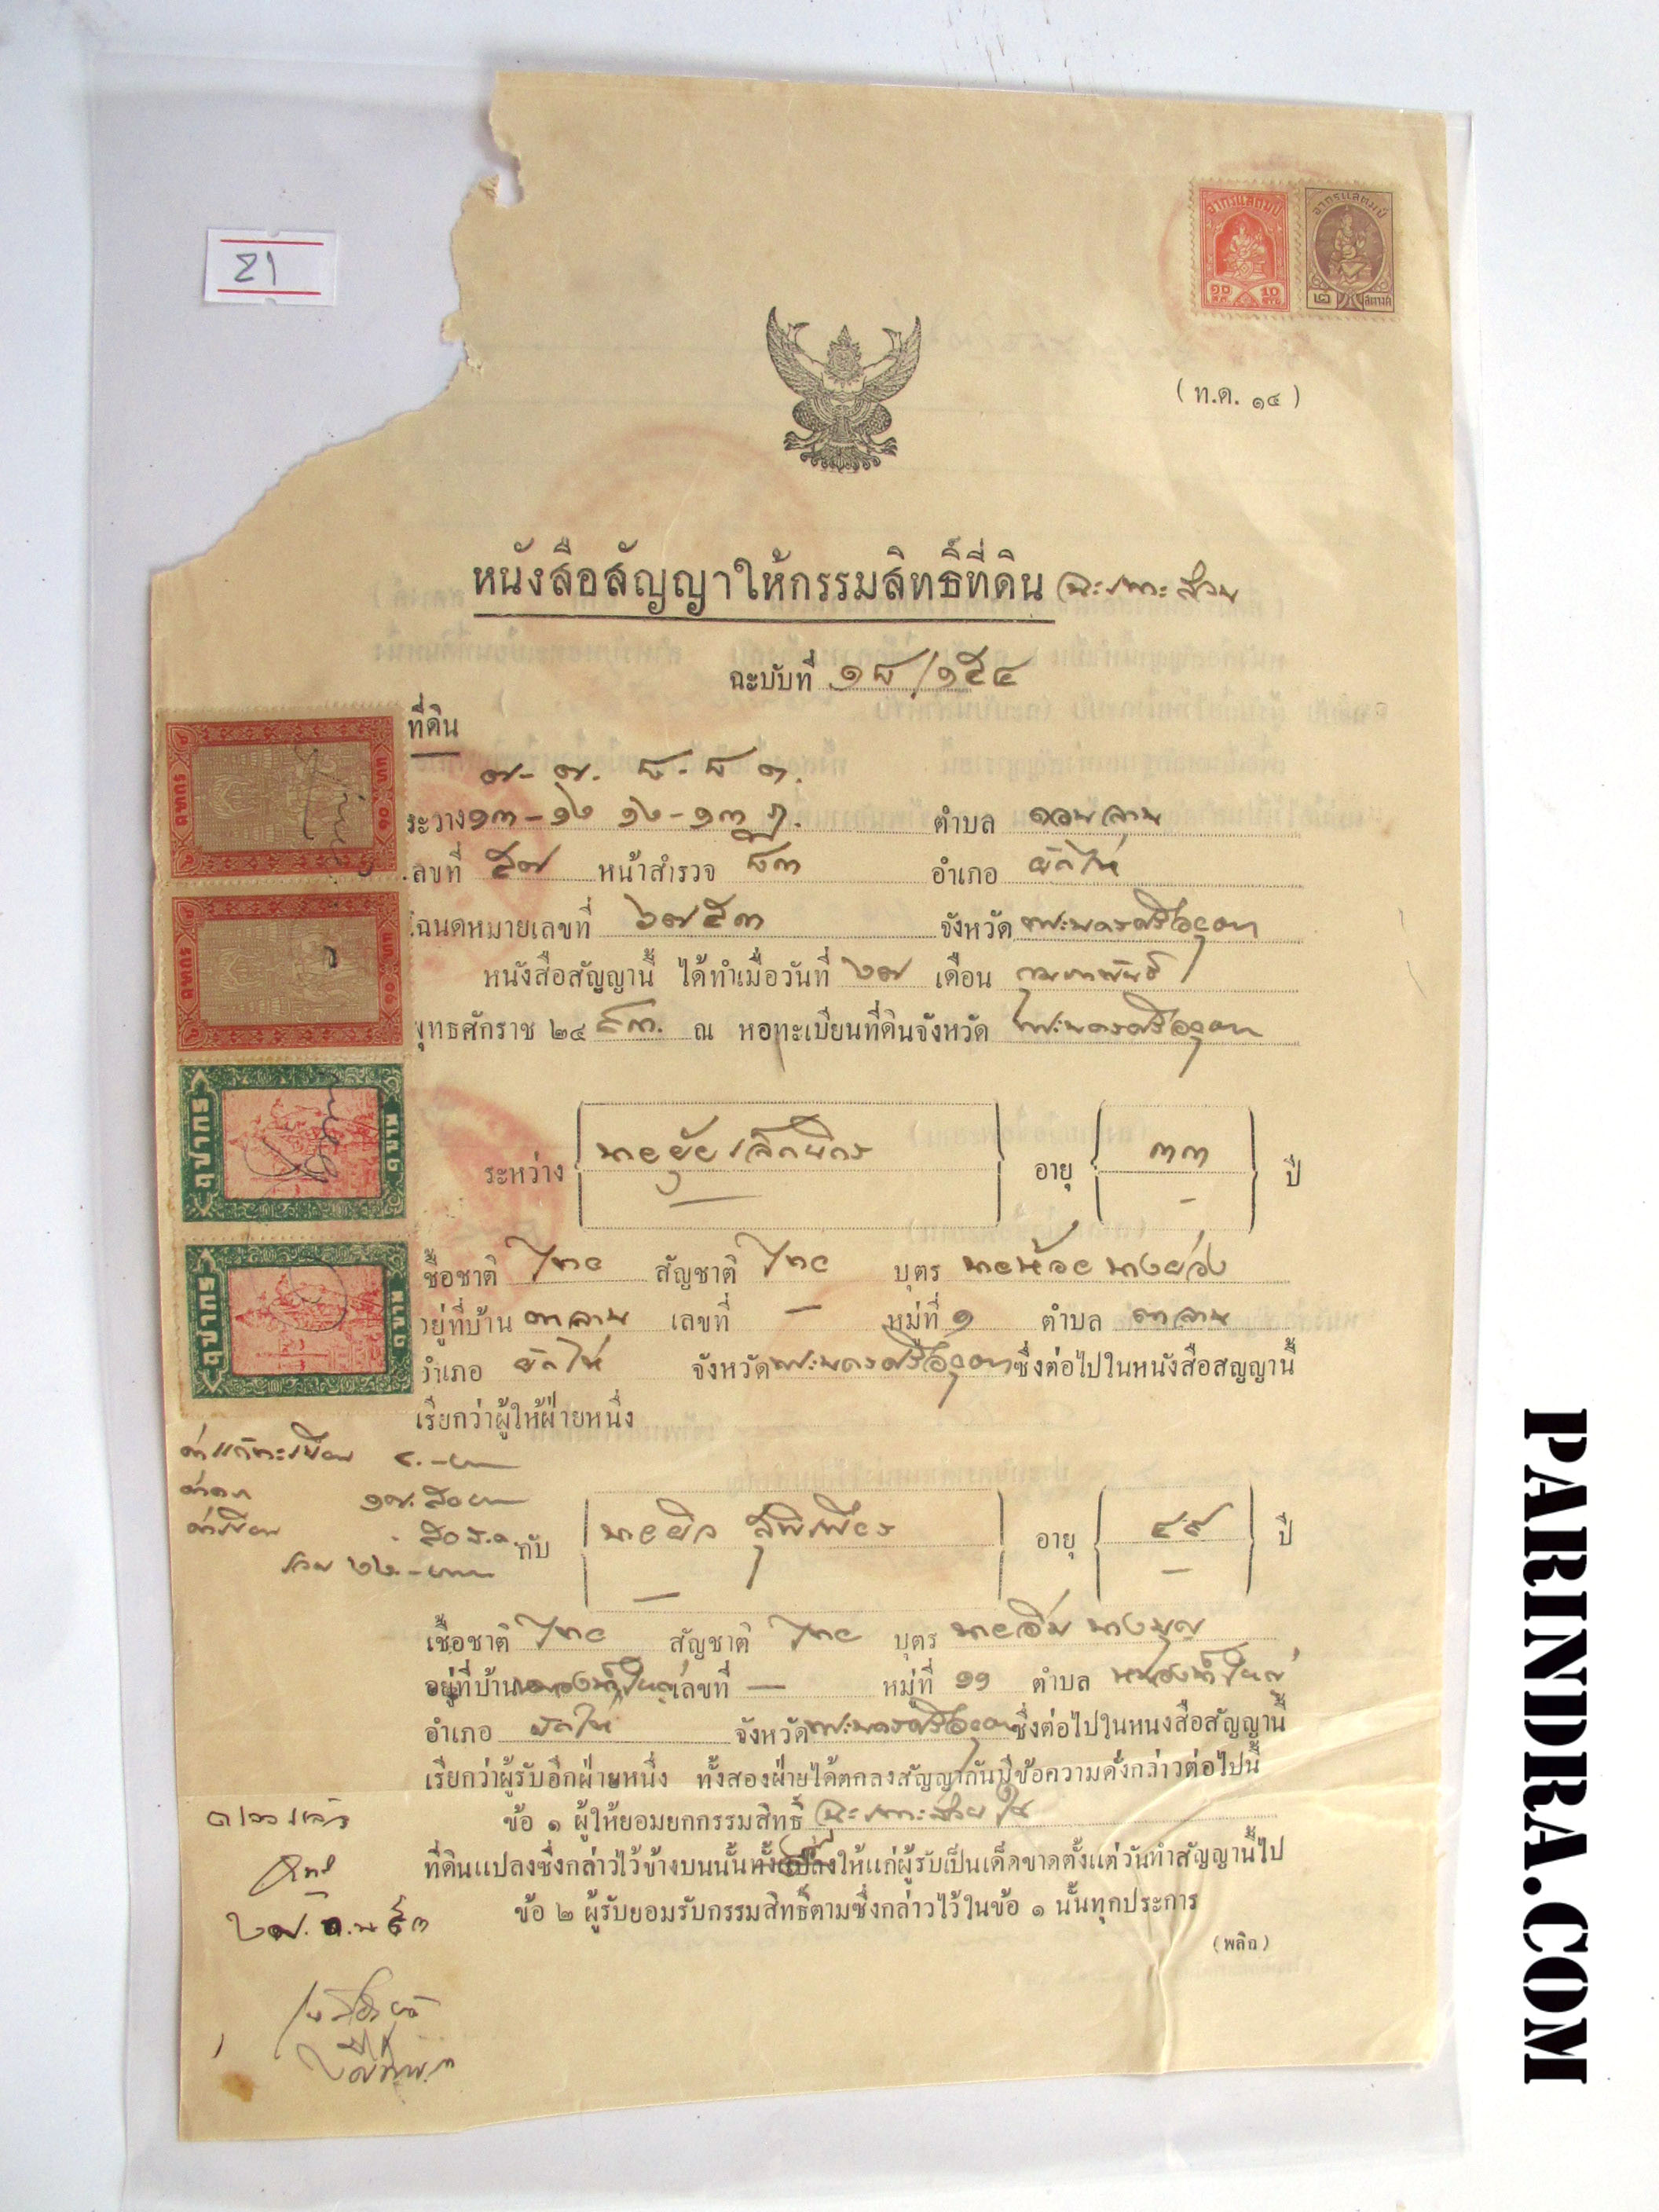 21
อากรแสตมป์
๑๐ สต. 10 สต.
อากรแสตมป์
๒ สตางค์
( ท.ด. ๑๔ )
หนังสือสัญญาให้กรรมสิทธิ์ที่ดิน ฉะเพาะส่วน
ฉะบับที่ ๑๘/๑๕๔
ที่ดิน
ระวาง ตำบล ดอนลาน
เลขที่ ๕๗ หน้าสำรวจ ๘๓ อำเภอ ผักไห่
โฉนดหมายเลขที่ ๖๗๕๓ จังหวัด พระนครศรีอยุธยา
หนังสือสัญญานี้ ได้ทำเมื่อวันที่ ๒๗ เดือน กุมภาพันธ์
พุทธศักราช ๒๔๘๓. ณ หอทะเบียนที่ดินจังหวัด พระนครศรีอยุธยา
ระหว่าง นาย อายุ ๓๓ ปี
เชื้อชาติ ไทย สัญชาติ ไทย บุตร นายห้อย นาง
อยู่ที่บ้าน ตาลาน เลขที่ – หมู่ที่ ๑ ตำบล ตาลาน
อำเภอ ผักไห่ จังหวัด พระนครศรีอยุธยา ซึ่งต่อไปในหนังสือสญญานี้
เรียกว่าผู้ให้ฝ่ายหนึ่ง
ค่าแก้ทะเบียน
ค่าเขียน
รวม ๒๒.–บาท
กับ นาย อายุ ๔๙ ปี
เชื้อชาติ ไทย สัญชาติ ไทย บุตร นายอิ่ม นางบุญ
อยู่ที่บ้าน หนองน้ำใหญ่ เลขที่ — หมู่ที่ ๑๑ ตำบล หนองน้ำใหญ่
อำเภอ ผักไห่ จังหวัด พระนครศรีอยุธยา ซึ่งต่อไปในหนงสือสัญญานี้
เรียกว่าผู้รับอีกฝ่ายหนึ่ง ทั้งสองฝ่ายได้ตกลงสัญญากันมีข้อความดั่งกล่าวต่อไปนี้
ข้อ ๑ ผู้ให้ยอมยกกรรมสิทธิ์ ฉะเพาะส่วน ใน
ที่ดินแปลงซึ่งกล่าวไว้ข้างบนนั้นทั้งแปลงให้แก่ผู้รับเป็นเด็ดขาดตั้งแต่วันทำสัญญานี้ไป
ข้อ ๒ ผู้รับยอมรับกรรมสิทธิ์ตามซึ่งกล่าวไว้ในข้อ ๑ นั้นทุกประการ
(พลิก)
ตรวจแล้ว
PARINDRA.COM